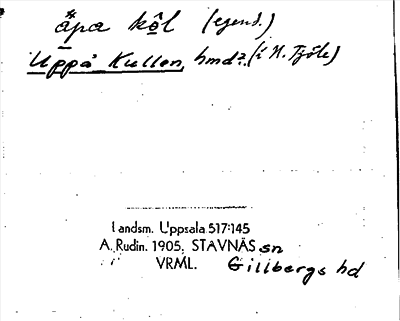 äpa kôl (egend.)
Uppå Kullen, hmd?. (i N. Fjöle)
Landsm. Uppsala 517:145
A. Rudin. 1905. STAVNÄS sn
VRML. Gillbergs hd